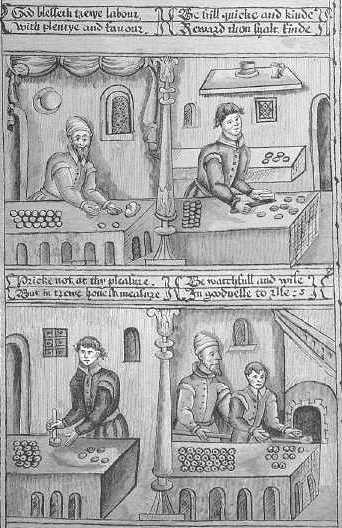 God blesseth trewe labour
with plentye and favour.
Be still quicke and kinde
Reward thou shalt finde
Pricke not at thy pleasure.
But in trewe honest measure
Be watchfull and wise
In goodnesse to rise: